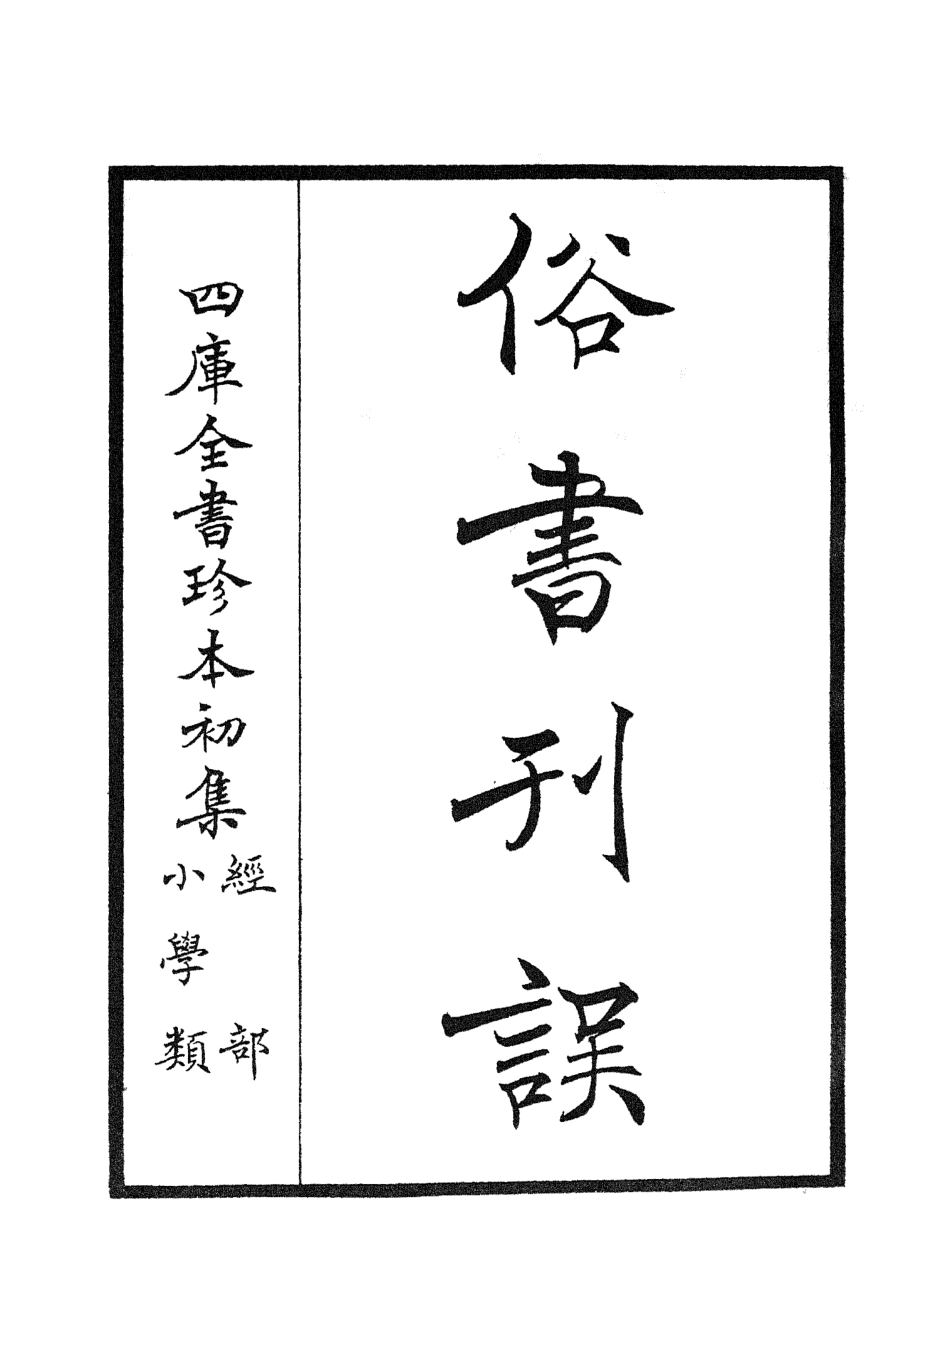 俗書刊誤
四庫全書珍本初集
經部
小學類